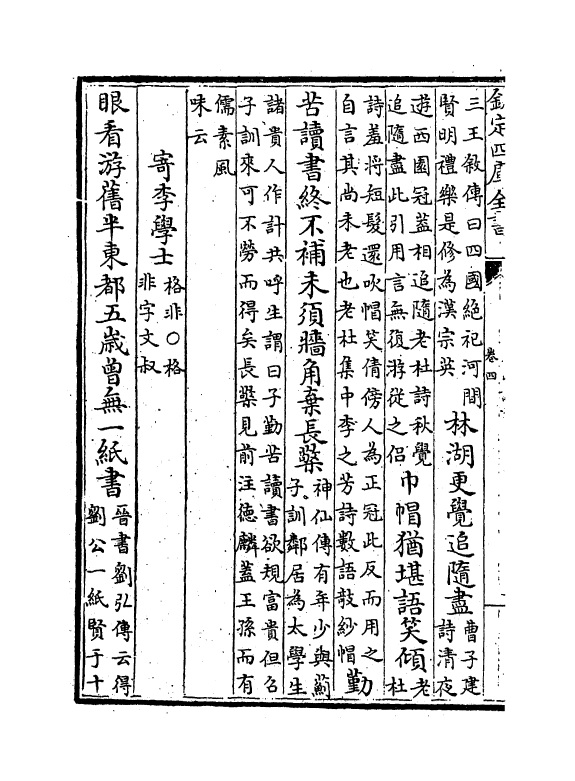 欽定四庫全書
卷四
三王敘傳曰四國絶祀河間
賢明禮樂是修為漢宗英
林湖更覺追隨盡
曹子建
詩清夜
遊西園冠蓋相追隨老杜詩秋覺
追隨盡此引用言無復游從之侣
巾帽猶堪語笑傾
老
杜
詩羞將短髮還吹帽笑倩傍人為正冠此反而用之
自言其尚未老也老杜集中李之芳詩數語攲紗帽
勤
苦讀書終不補未須牆角棄長檠
神仙傳有年少與薊
子訓鄰居為太學生
諸貴人作計共呼生謂曰子勤苦讀書欲規富貴但召
子訓來可不勞而得矣長檠見前注德麟蓋王孫而有
儒素風
味云
寄李學士
格非○格
非字文叔
眼看游舊半東都五歳曾無一紙書
晉書劉弘傳云得
劉公一紙賢于十